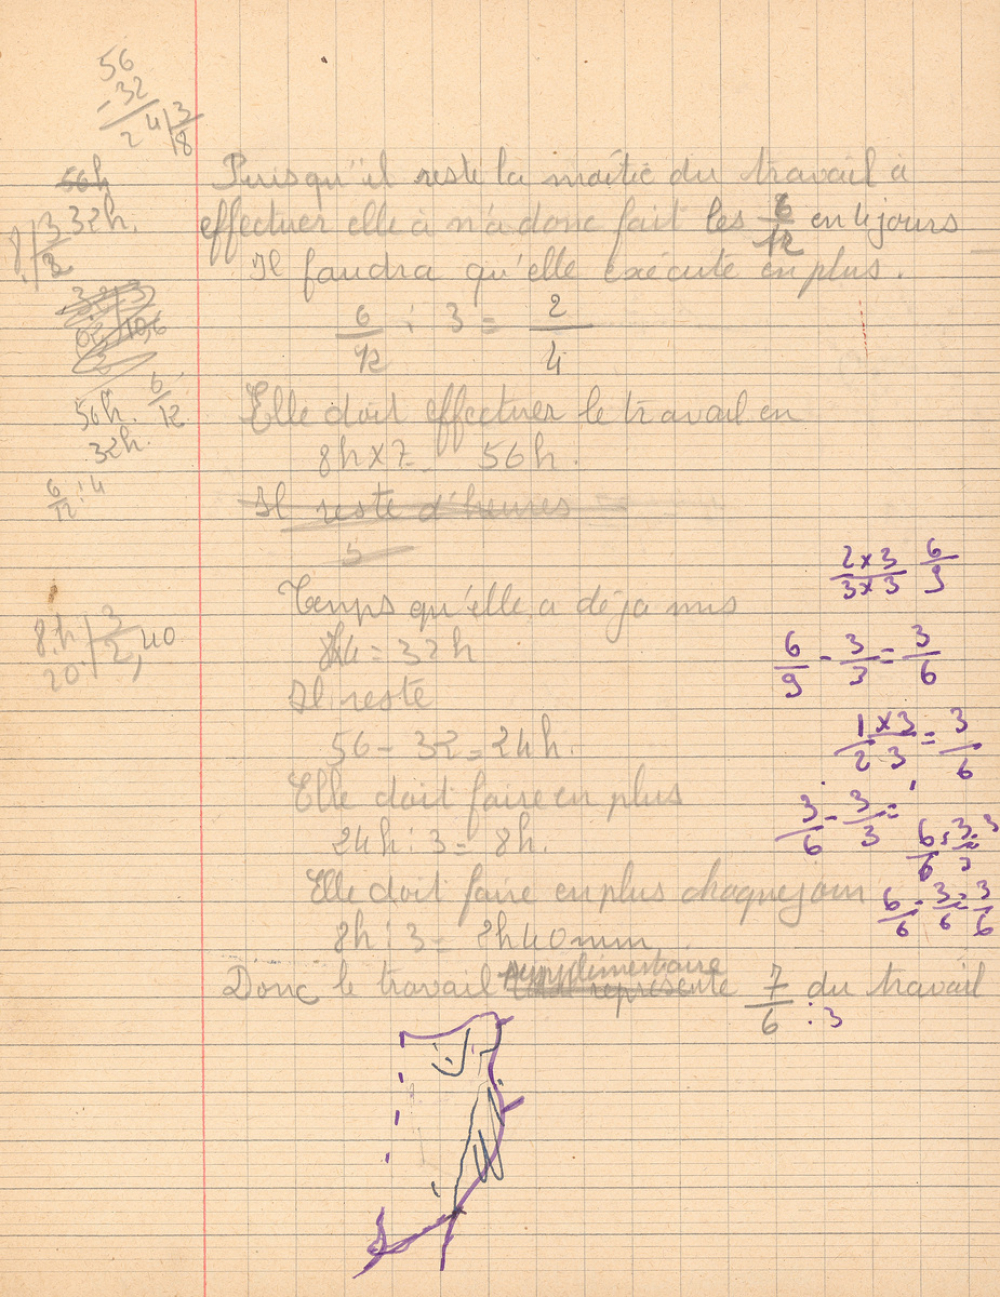 56
- 32
24 | 3
18
56h
32h.
8 | 3
2
56h. 6/12
32h.
6/12 : 4
8.h | 3
20 | 2,40
Puisqu'il reste la moitié du travail à
effectuer elle à n'a donc fait les 6/12 en 4 jours
Il faudra qu'elle exécute en plus.
6/12 : 3 = 2/4
Elle doit effectuer le travail en
8h x 7 56h.
Il reste d'heures
5
Temps qu'elle a déja mis
8x4 = 32h
Il reste
56 - 32 = 24h.
Elle doit faire en plus
24h : 3 = 8h.
Elle doit faire en plus chaque jour
8h : 3 = 2h40mm
Donc le travail supplimentaire représente 7/6 du travail
: 3
2x3/3x3 6/9
6/9 - 3/3 = 3/6
1x3/2 3 = 3/6
3/6 - 3/3 =
6/6 - 3/6 = 3/6